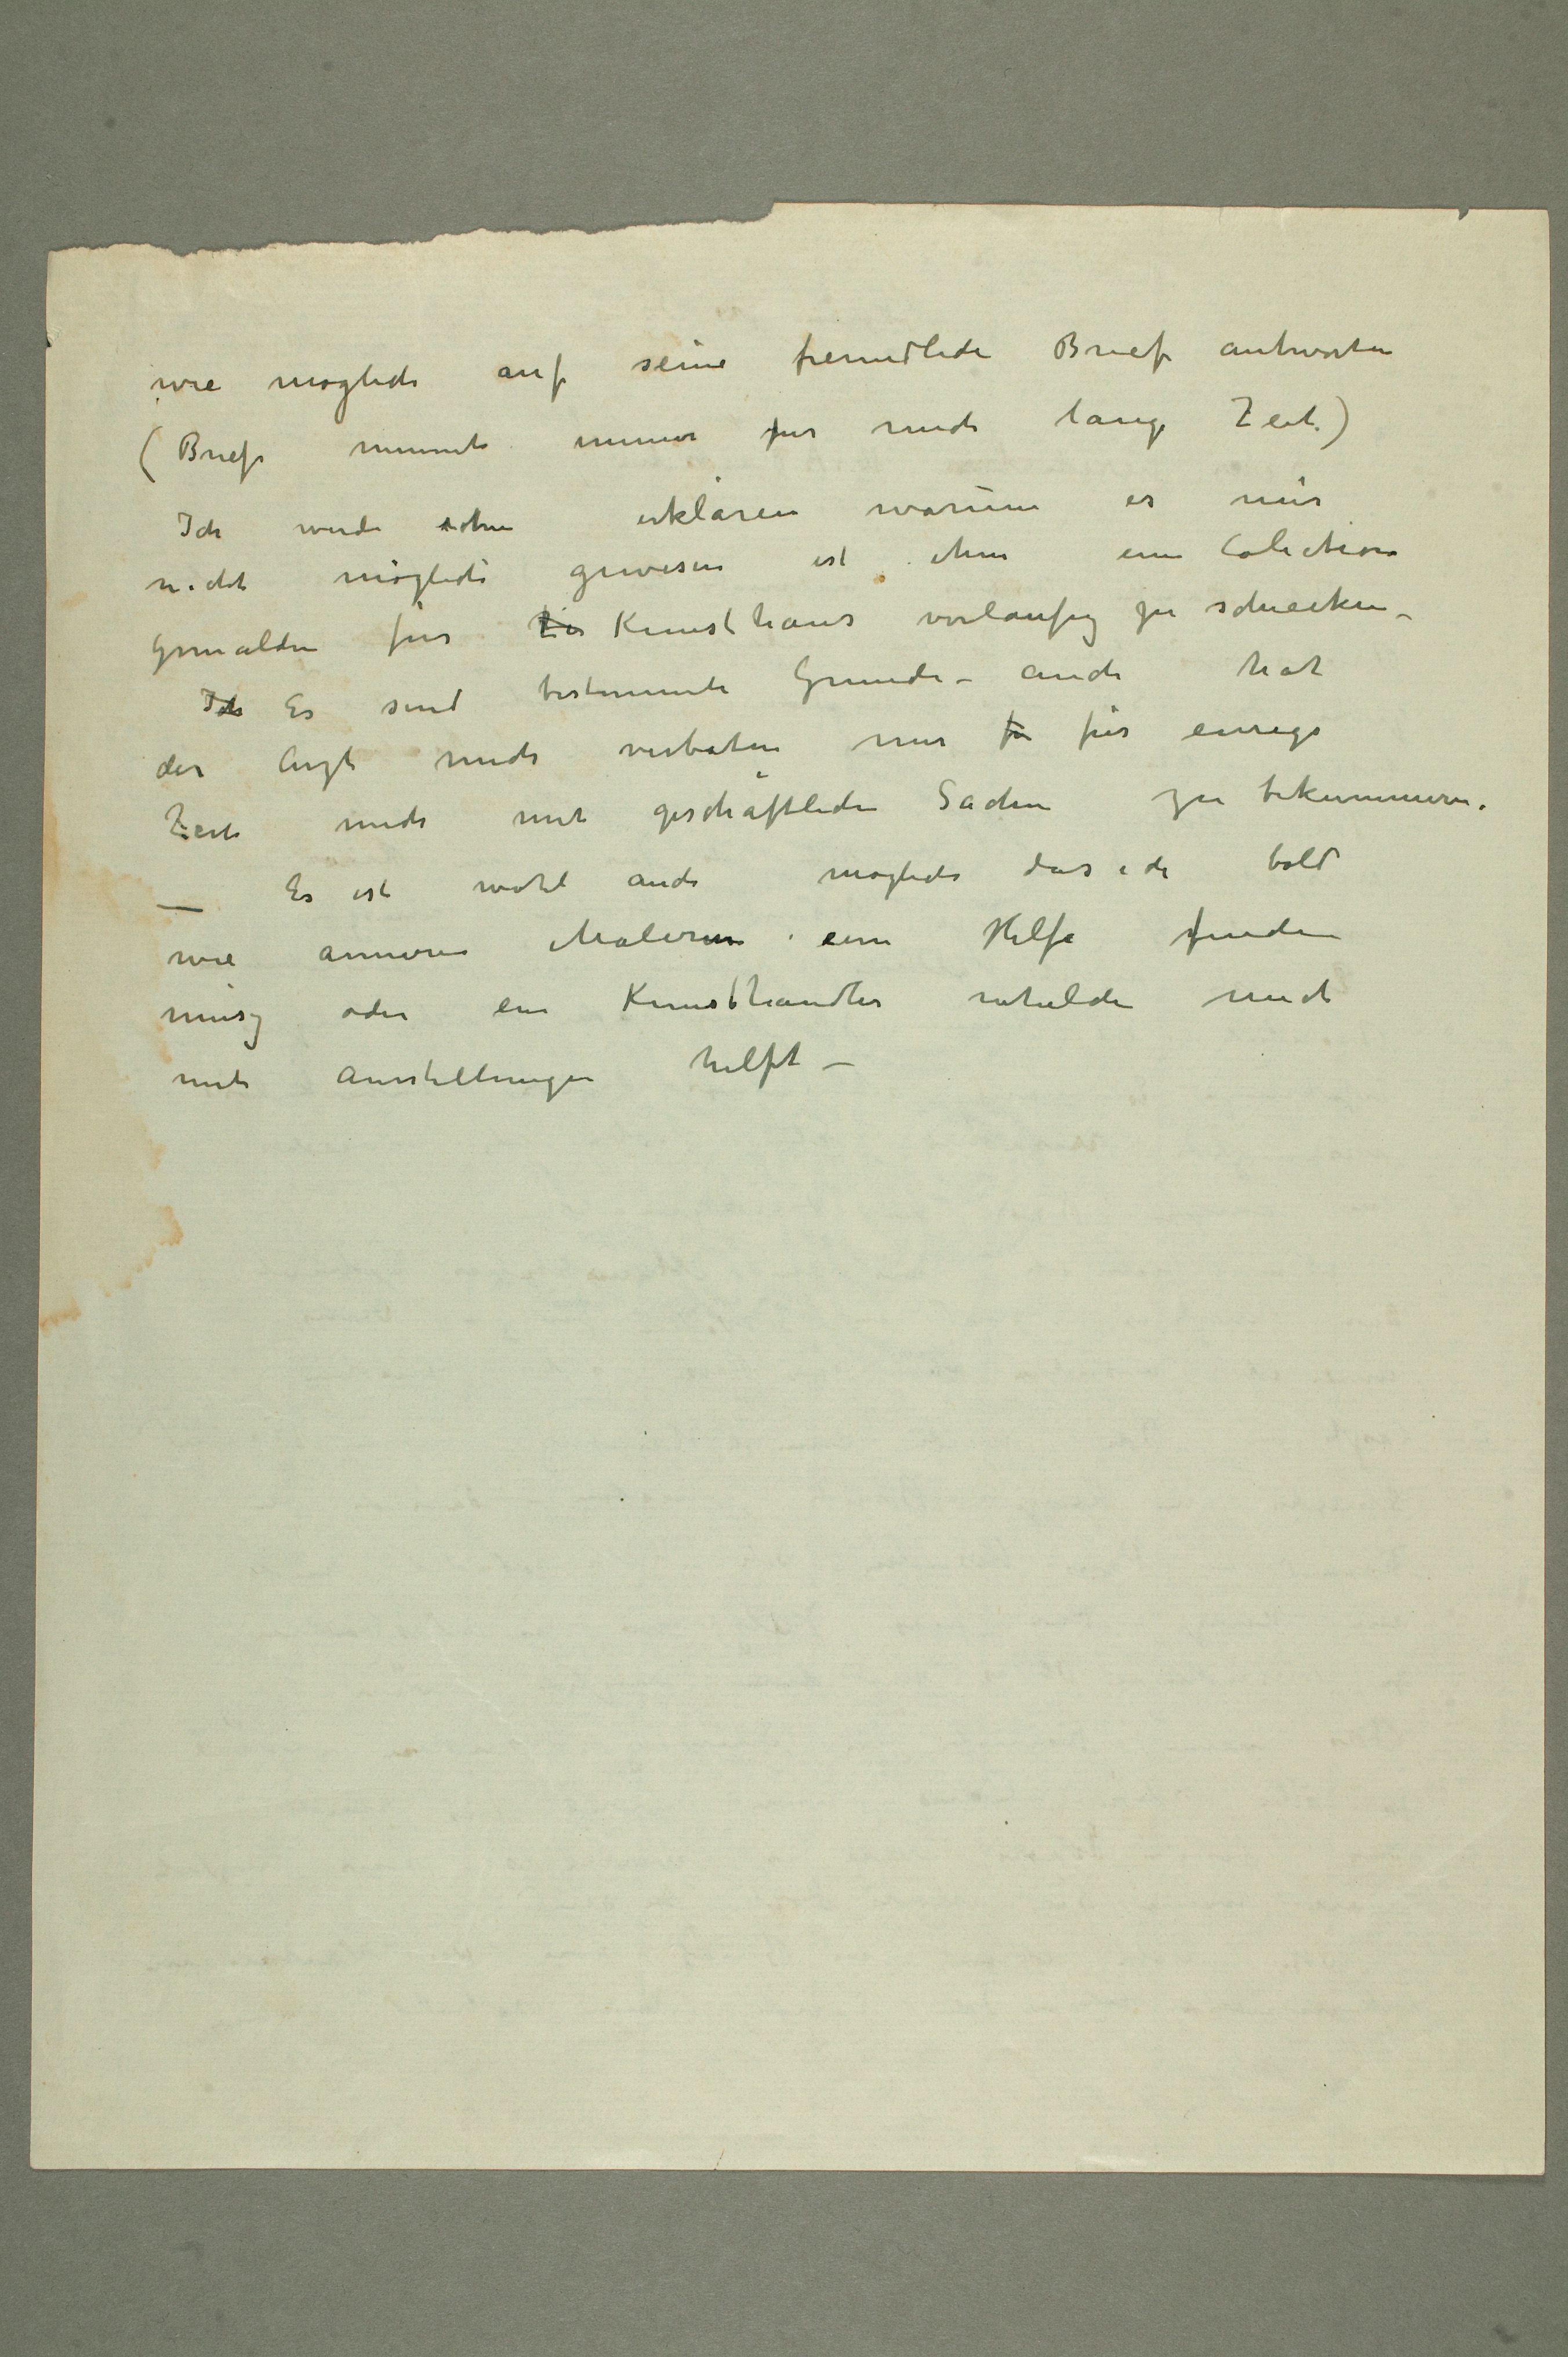 wie möglich auf seine freundliche Brief antworten
(Briefe nimmt immer für mich lange Zeit.)
Ich werde ihm erklären warum es mir
nicht möglich gewesen ist ihm eine Colection
Gemälden für Kunsthaus vorläufig zu schicken –
Ich Es sind bestimmte Grunde – auch hat
der Arzt mich verboten mir fü für einige
Zeit mich mit geschäftliche Sachen zu bekummern.
— Es ist wohl auch möglich das ich bald
wie anneren Maleren eine Hilfe finden
müsz oder ein Kunsthändler mich
mit Ausstellungen helft –